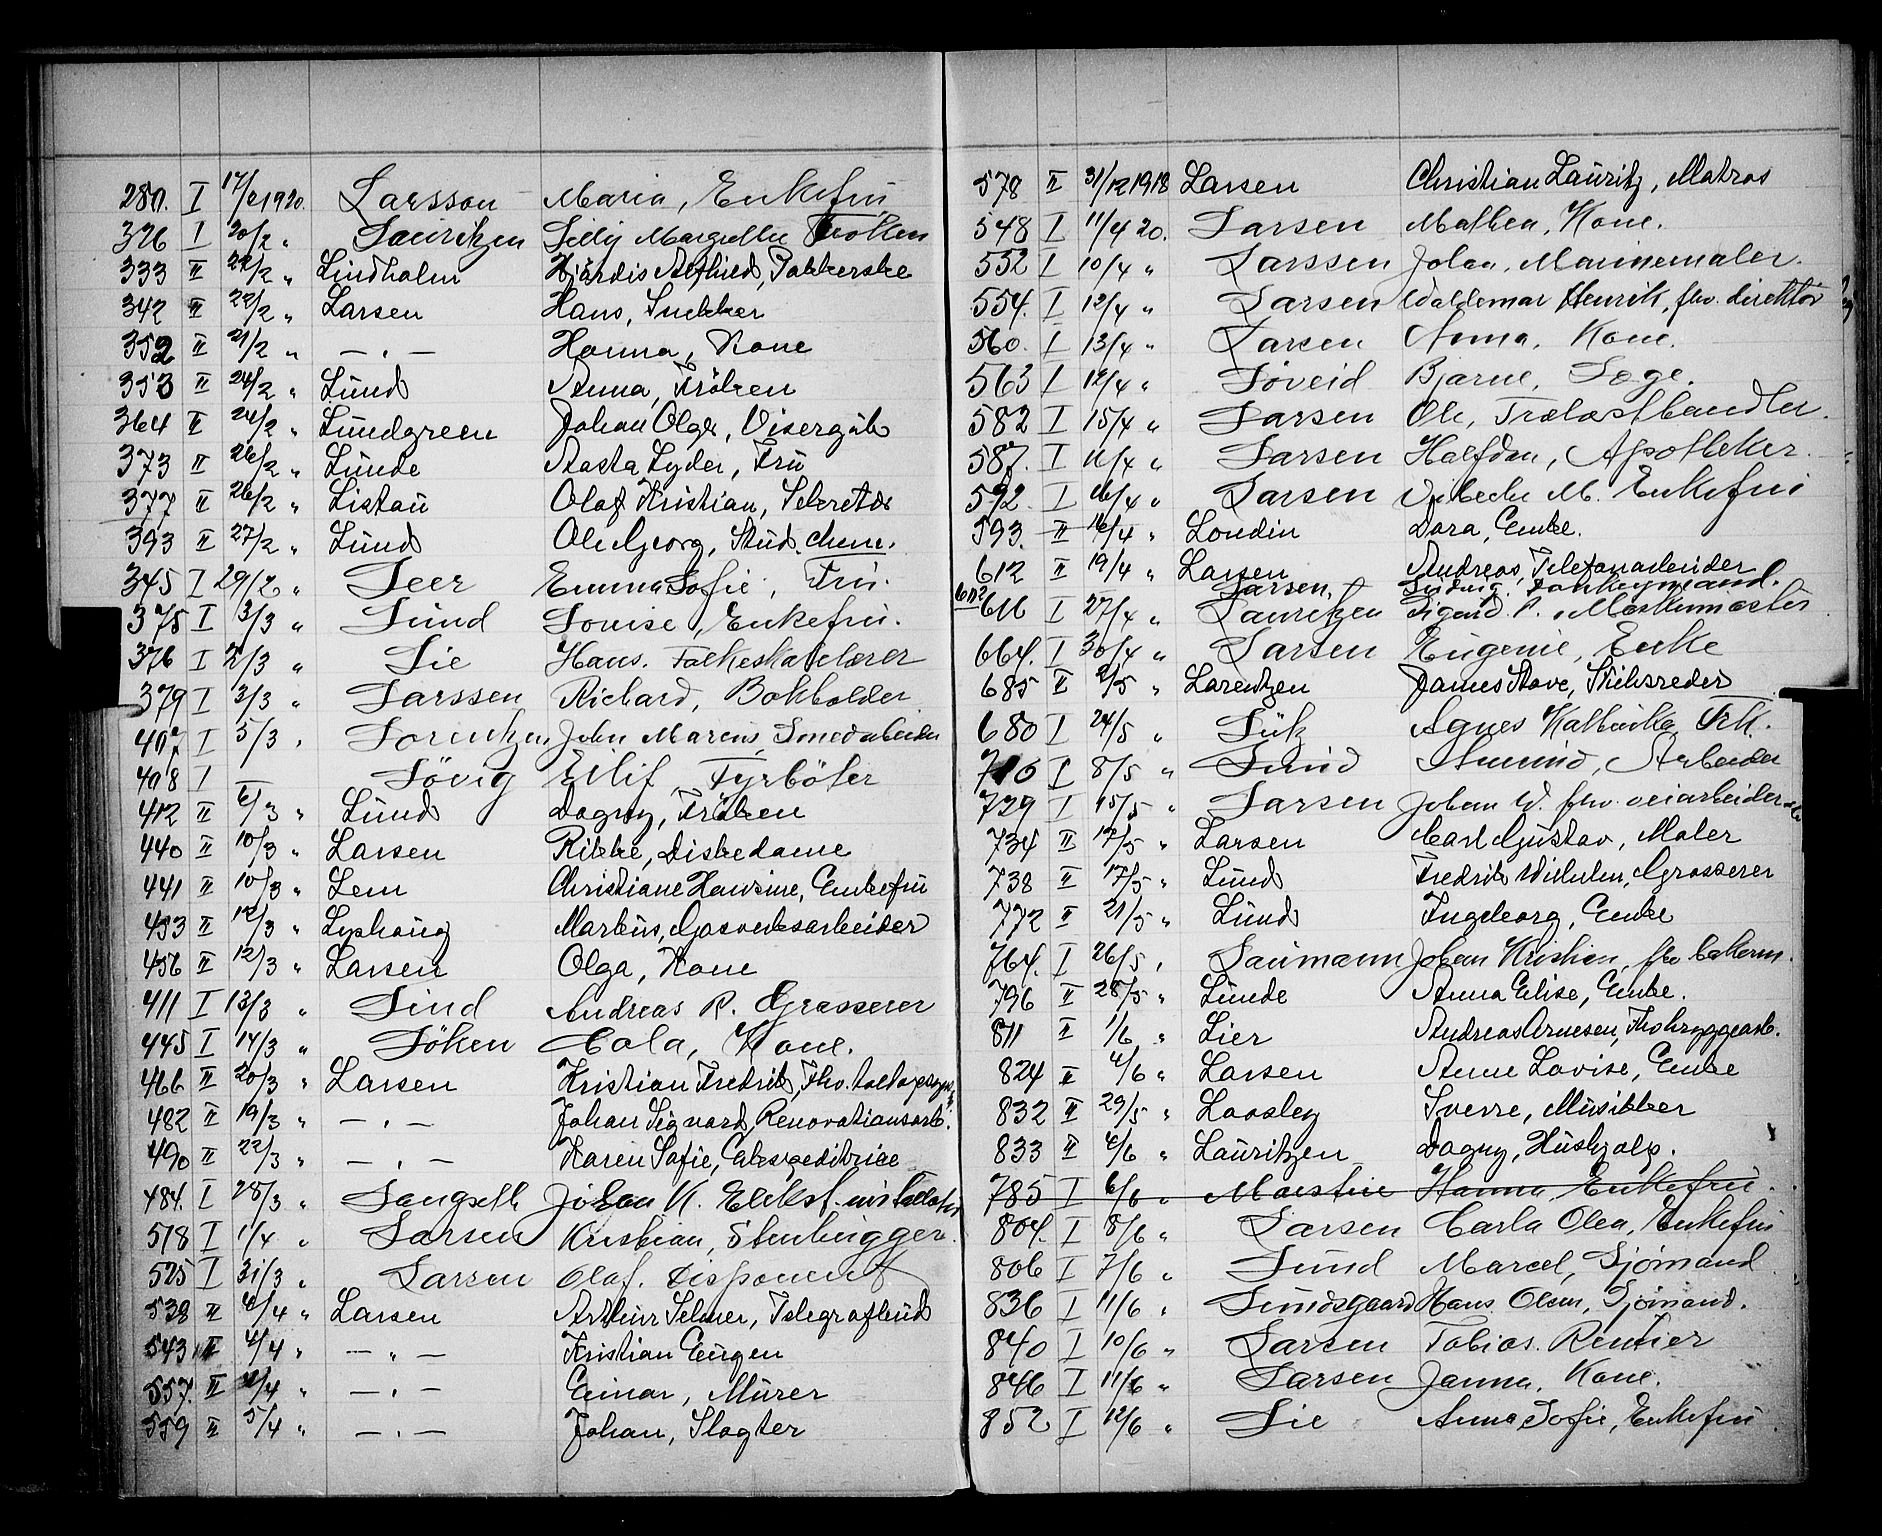 280. I 17/2 1920. Larsson Maria, Enkefru
326 I 20/2 " Lauritzen Lilly Margrethe Frøken
333 II 22/2 " Lindholm Hjørdis Alfhild, Pakkerske
342 II 22/2 " Larsen Hans, Snekker
352 II 21/2 " — " — Hanna, Kone
353 II 24/2 " Lund Anna, Frøken
364 II 24/2 " Lundgreen Johan Olger, Visergut
373 II 26/2 " Lunde Aasta Lyder, Fru
377 II 26/2 " Listau Olaf Kristian, Sekretær
393 II 27/2 " Lund Ole Georg, Stud. chem.
345 I 29/2 " Leer Emma Sofie, Fru.
375 I 3/3 " Lund Louise, Enkefru.
376 I 2/3 " Lie Hans. Folkeskolelærer
379 I 3/3 " Larssen Richard, Bokholder
407 I 5/3 " Lorentzen John Marius, Smedarbeider
408 I — Løvig Eilif Fyrbøter
412 II 6/3 " Lund Dagny, Frøken
440 II 10/3 " Larsen Rikke, Diskedame
441 II 10/3 " Lem Christiane Hansine, Enkefru
453 II 12/3 " Lyshaug Markus, Gasverksarbeider
456 II 12/3 " Larsen Olga, Kone
411 I 13/3 " Lind Andreas R. Grosserer
445 I 14/3 " Løken Cola, Kone.
466 II 20/3 " Larsen Kristian Fredrik, Fhv.
482 II 19/3 " — " — Johan Sigvard, Renovationsarb.
490 II 22/3 " — " — Karen Sofie, Ekspeditrice
484. I 25/3 " Langseth Johan K. Elekt. installatør
518 I 1/4 " Larsen Kristian, Stenhugger.
525 I 31/3 " Larsen Olaf. Disponent
538 II 4/4 " Larsen Arthur Selmer, Telegrafbud
543 II 4/4 " — " — Kristian Eugen
557. II 4/4 " — " — Einar, Murer
559 II 5/4 " — " — Johan, Slagter
578 II 31/12 1918 Larsen Christian Lauritz, Matros
548 I 11/4 20. Larsen Mathea, Kone.
552 I 10/4 " Larssen Johan, Marinemaler.
554. I 12/4 " Larsen Valdemar Henrik, fhv. direktør
560. I 13/4 " Larsen Anna, Kone.
563 I 12/4 " Løveid Bjarne, Læge.
582 I 15/4 " Larsen Ole, Trælasthandler.
587. I 11/4 " Larsen Halfdan, Apotheker.
592. I 16/4 " Larsen Vibeche M. Enkefru
593. II 16/4 " Londin Dora, Enke.
612 II 19/4 " Larsen Andreas, Telefonarbeider
602 Larsen, Ludvig. Donkeymand.
616 I 27/4 " Lauritzen Sigurd P. Maskinmester
664. I 30/4 " Larsen Eugenie, Enke
685 II 2/5 " Lorentzen James Stove, Skibsreder
680 I 24/5 " Lük Agnes Kathinka Frk.
710 I 8/5 " Lund Amund, Arbeider
729 I 15/5 " Larsen Johan W. fhv. veiarbeider
734 II 17/5 " Larsen Carl Gustav, Maler
738 II 17/5 " Lund Fredrik Vilhelm, Grosserer
772 II 21/5 " Lund Ingeborg, Enke
764. I 26/5 " Laumann Johan Kristian, fhv bakerm.
796 II 28/5 " Lunde Anna Elise, Enke.
811 II 1/6 " Lier Andreas Arnesen, Fhv bryggearb.
824 II 4/6 " Larsen Anne Lovise, Enke
832 II 29/5 " Loosley Sverre, Musikker
833 II 4/6 " Lauritzen Dagny, Hushjælp.
785 I 6/6 " Hanna Enkefru.
804. I 8/6 " Larsen Carla Olea, Enkefru
806 I 7/6 " Lund Marcel, Sjømand
836 I 11/6 " Lundsgaard Hans Olsen, Sjømand.
840 I 10/6 " Larsen Tobias. Rentier
846 I 11/6 " Larsen Janna, Kone.
852 I 12/6 " Lie Anna Sofie, Enkefru